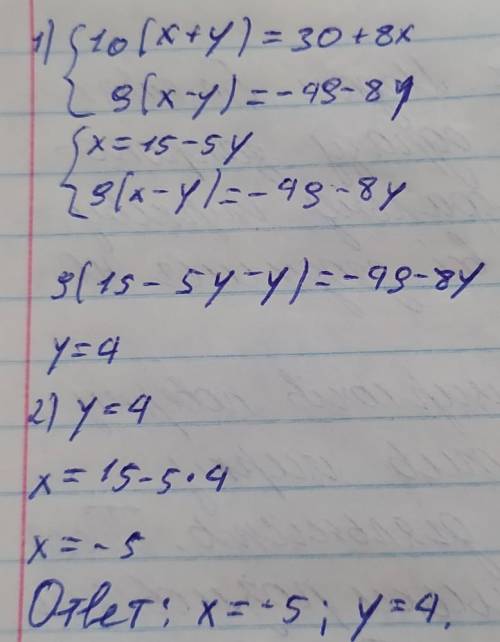 1) { 10(x+y)=30+8x
9(x-y)=-49-8y
{ x=15-5y
9(x-y)=-49-8y
9(15-5y-y)=-49-8y
y=4
2) y=4
x=15-5·4
x=-5
Ответ: x=-5; y=4.